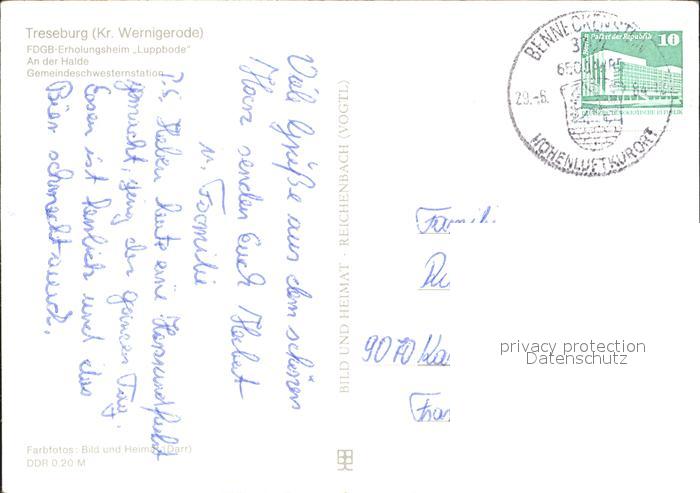 Treseburg (Kr. Wernigerode)
FDGB-Erholungsheim „Luppbode"
An der Halde
Gemeindeschwesternstation
Viele Grüße aus dem schönen
Harz senden Euch Herbert
u. Familie
P.S. Haben heute eine Harzrundfahrt
gemacht, ging den ganzen Tag.
Essen ist herrlich und das
Bier schmeckt auch.
Farbfotos: Bild und Heimat (Darr)
DDR 0,20 M
BILD UND HEIMAT · REICHENBACH (VOGTL)
BENNECKENSTEIN
650 JAHRE
29.-6.
HÖHENLUFTKURORT
Palast der Republik 10
DEUTSCHE DEMOKRATISCHE REPUBLIK
Famili
9070 Ka
privacy protection
Datenschutz